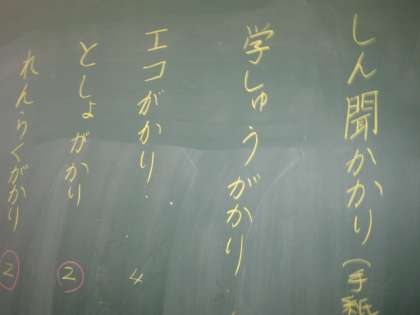 しん聞かかり（手紙
学しゅうがかり・
エコがかり・・4
としょがかり ②
れんらくがかり ②